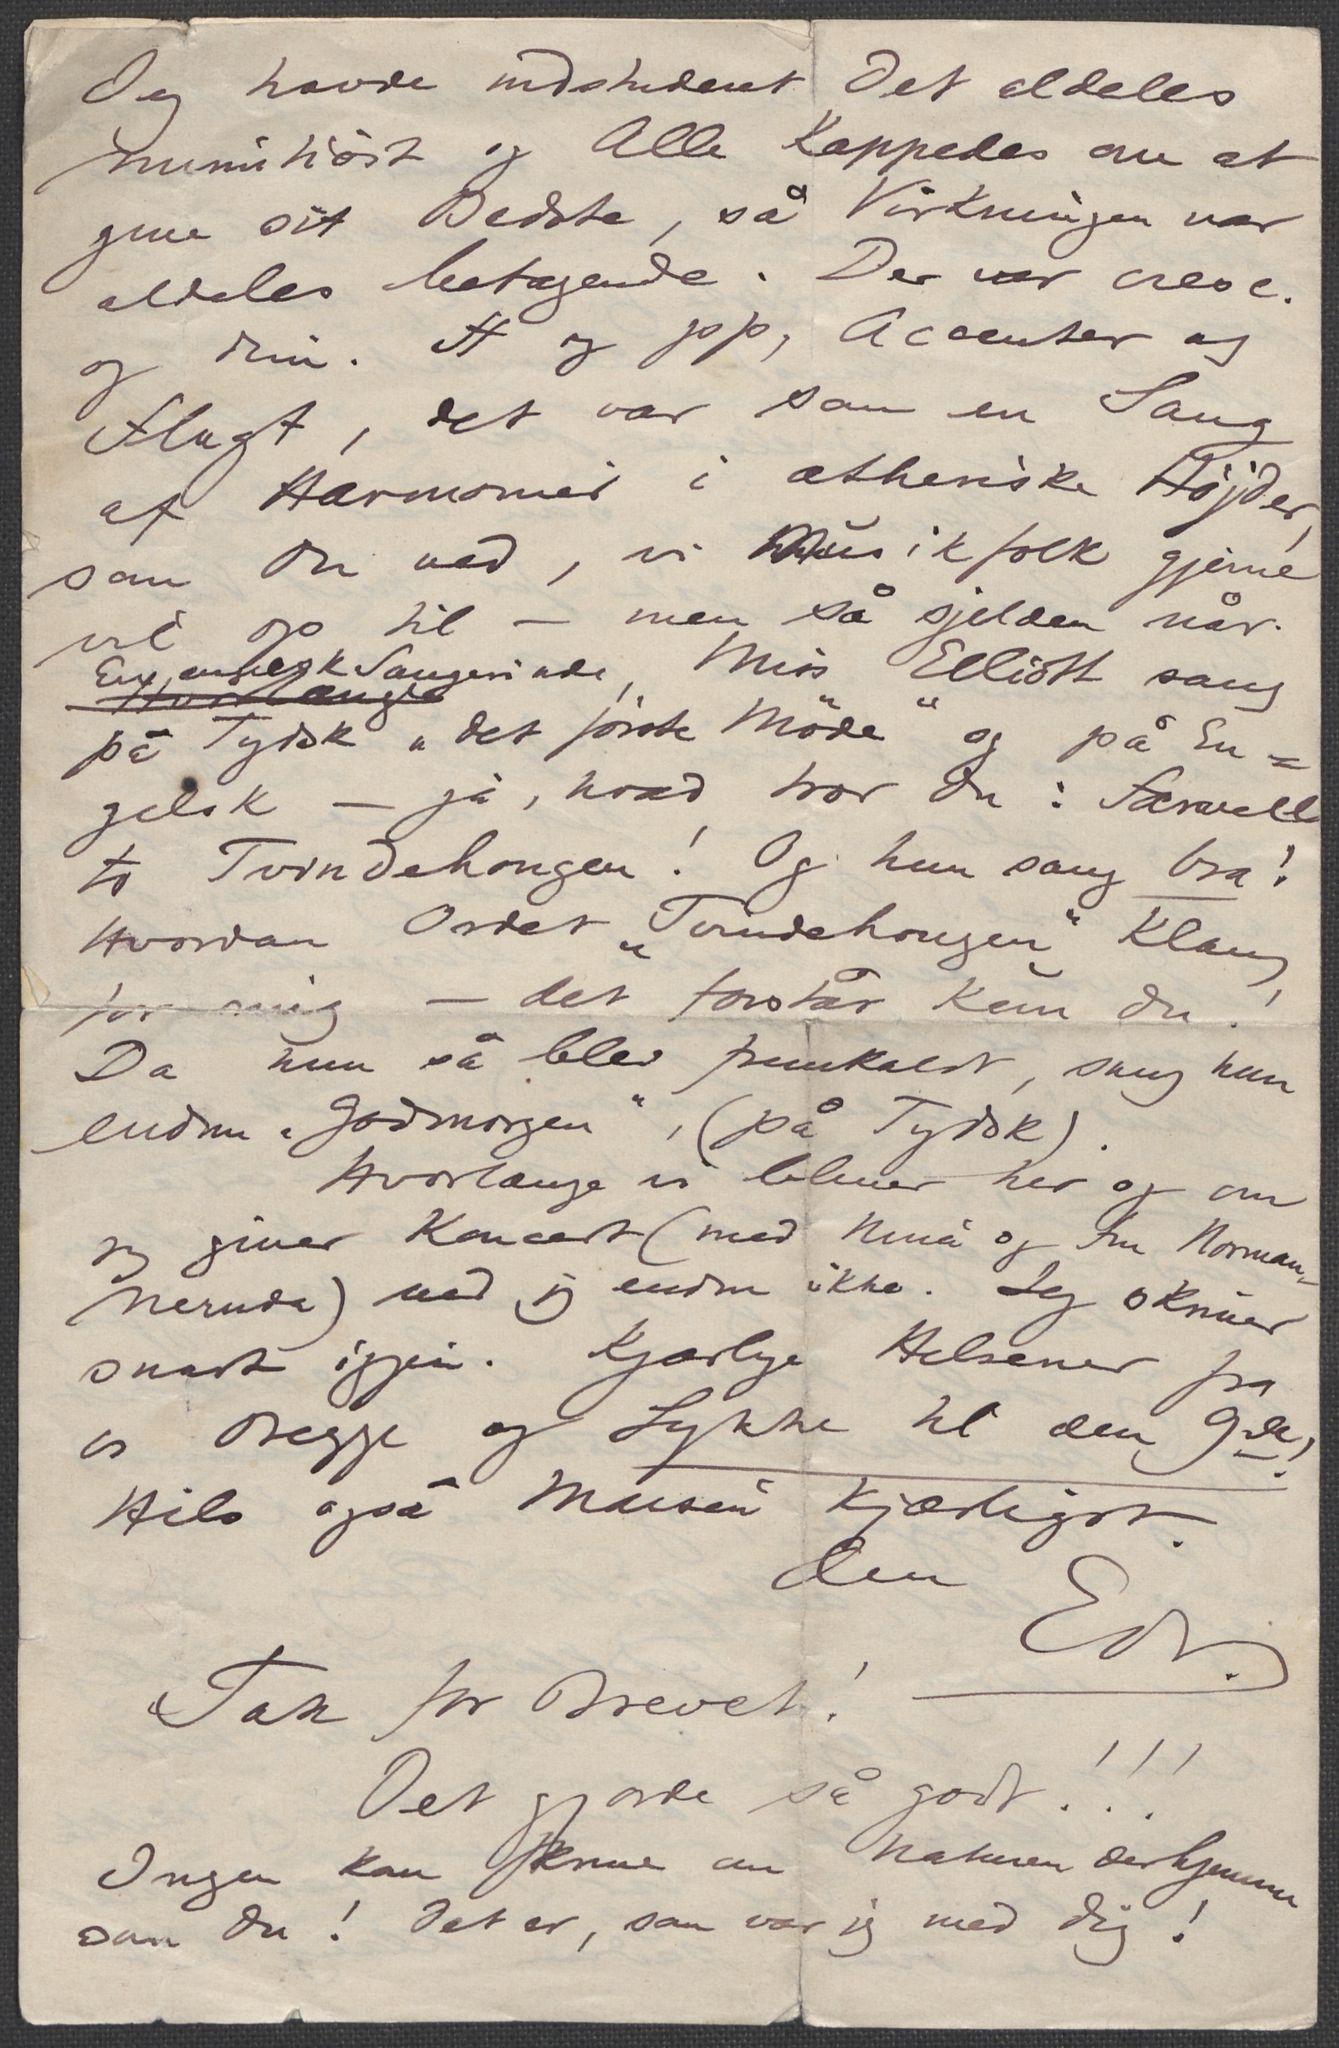 Jeg havde indstuderet Det aldeles
minutiöst og Alle kappedes om at
give sit Bedste, så Virkningen var
aldeles betagende. Der var cresc.
og dim. ff og pp, Accenter og
Flugt, det var som en Sang
af Harmonier i ætheriske Höjder,
som Du ved, vi Musikfolk gjerne
vil op til – men så sjelden når.
En engelsk Sangerinde, Miss Elliott sang
på Tydsk „det förste Möde" og på En=
gelsk – ja, hvad tror Du: Farwell
to Tvindehougen! Og hun sang bra!
Hvordan Ordet „Tvindehougen" klang
for mig – det forstår kun Du!
Da hun så blev fremkaldt, sang hun
endnu „Godmorgen", (på Tydsk).
Hvorlænge vi bliver her og om
jeg giver Koncert (med Nina og Fru Norman=
Neruda) ved jeg endnu ikke. Jeg skriver
snart igjen. Kjærlige Hilsener fra
os Begge og Lykke til den 9de!
Hils også Marie kjærligst.
Din
Edv.
Tak for Brevet!
Det gjorde så godt!!!
Ingen kan skrive om Naturen derhjemme
som Du! Det er, som var jeg med Dig!